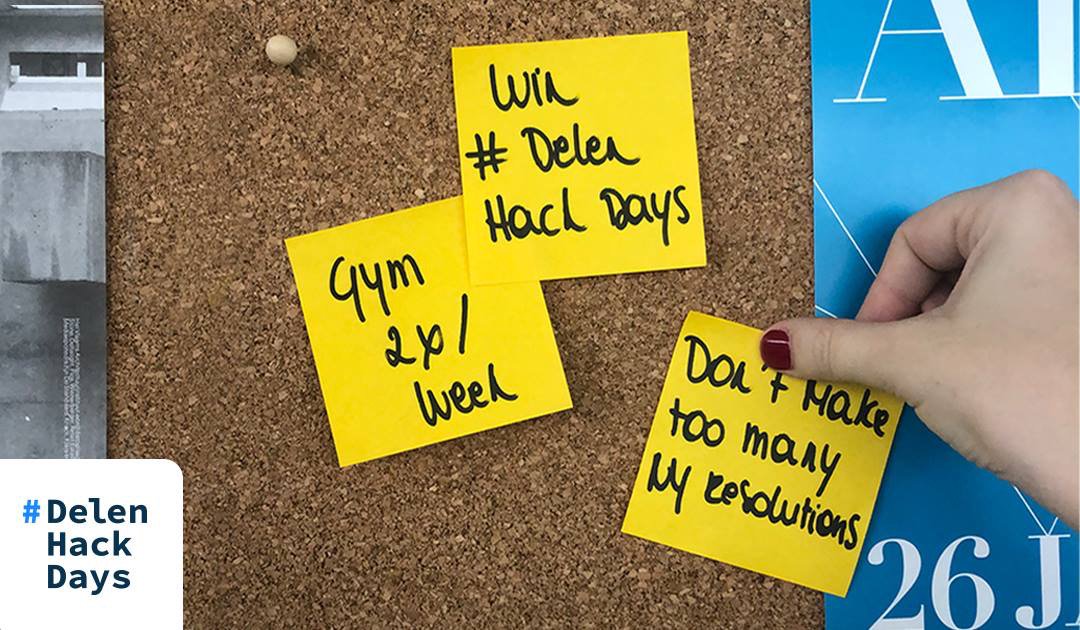 Win
# Delen
Hack Days
Gym
2x/
Week
Don't Make
too many
NY resolutions
26 J
#Delen
Hack
Days